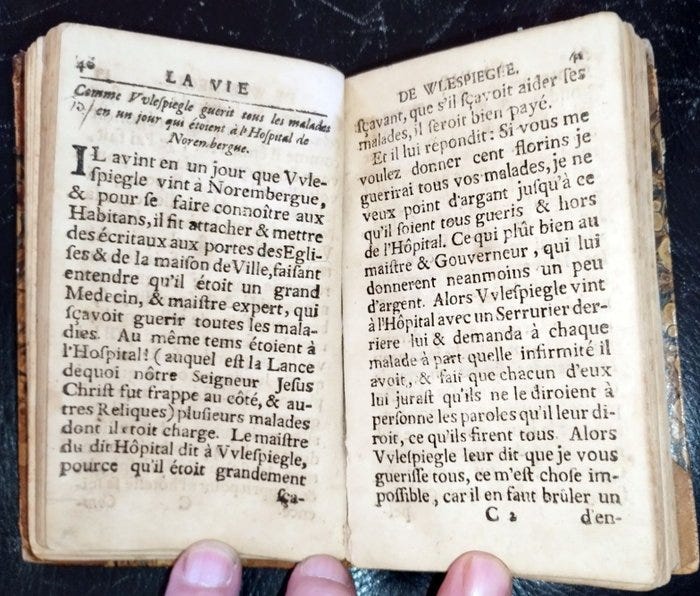 40
LA VIE
Comme Vvleſpiegle guerit tous les malades
en un jour qui étoient à l'Hoſpital de
Norembergue.
IL avint en un jour que Vvle-
ſpiegle vint à Norembergue,
& pour ſe faire connoître aux
Habitans, il fit attacher & mettre
des écritaux aux portes des Egli-
ſes & de la maiſon de Ville, faiſant
entendre qu'il étoit un grand
Medecin, & maiſtre expert, qui
ſçavoit guerir toutes les mala-
dies. Au même tems étoient à
l'Hoſpital! (auquel eſt la Lance
dequoi nôtre Seigneur Jesus
Chriſt fut frappe au côté, & au-
tres Reliques) pluſieurs malades
dont il étoit charge. Le maiſtre
du dit Hôpital dit à Vvleſpiegle,
pource qu'il étoit grandement
ſça-
41
DE WLESPIEGLE.
ſçavant, que s'il ſçavoit aider ſes
malades, il ſeroit bien payé.
Et il lui répondit: Si vous me
voulez donner cent florins je
guerirai tous vos malades, je ne
veux point d'argant juſqu'à ce
qu'il ſoient tous gueris & hors
de l'Hôpital. Ce qui plût bien au
maiſtre & Gouverneur, qui lui
donnerent neanmoins un peu
d'argent. Alors Vvleſpiegle vint
à l'Hôpital avec un Serrurier der-
riere lui & demanda à chaque
malade à part quelle infirmité il
avoit, & fait que chacun d'eux
lui juraſt qu'ils ne le diroient à
perſonne les paroles qu'il leur di-
roit, ce qu'ils firent tous. Alors
Vvleſpiegle leur dit que je vous
gueriſſe tous, ce m'eſt choſe im-
poſſible, car il en faut brûler un
C 2 d'en-